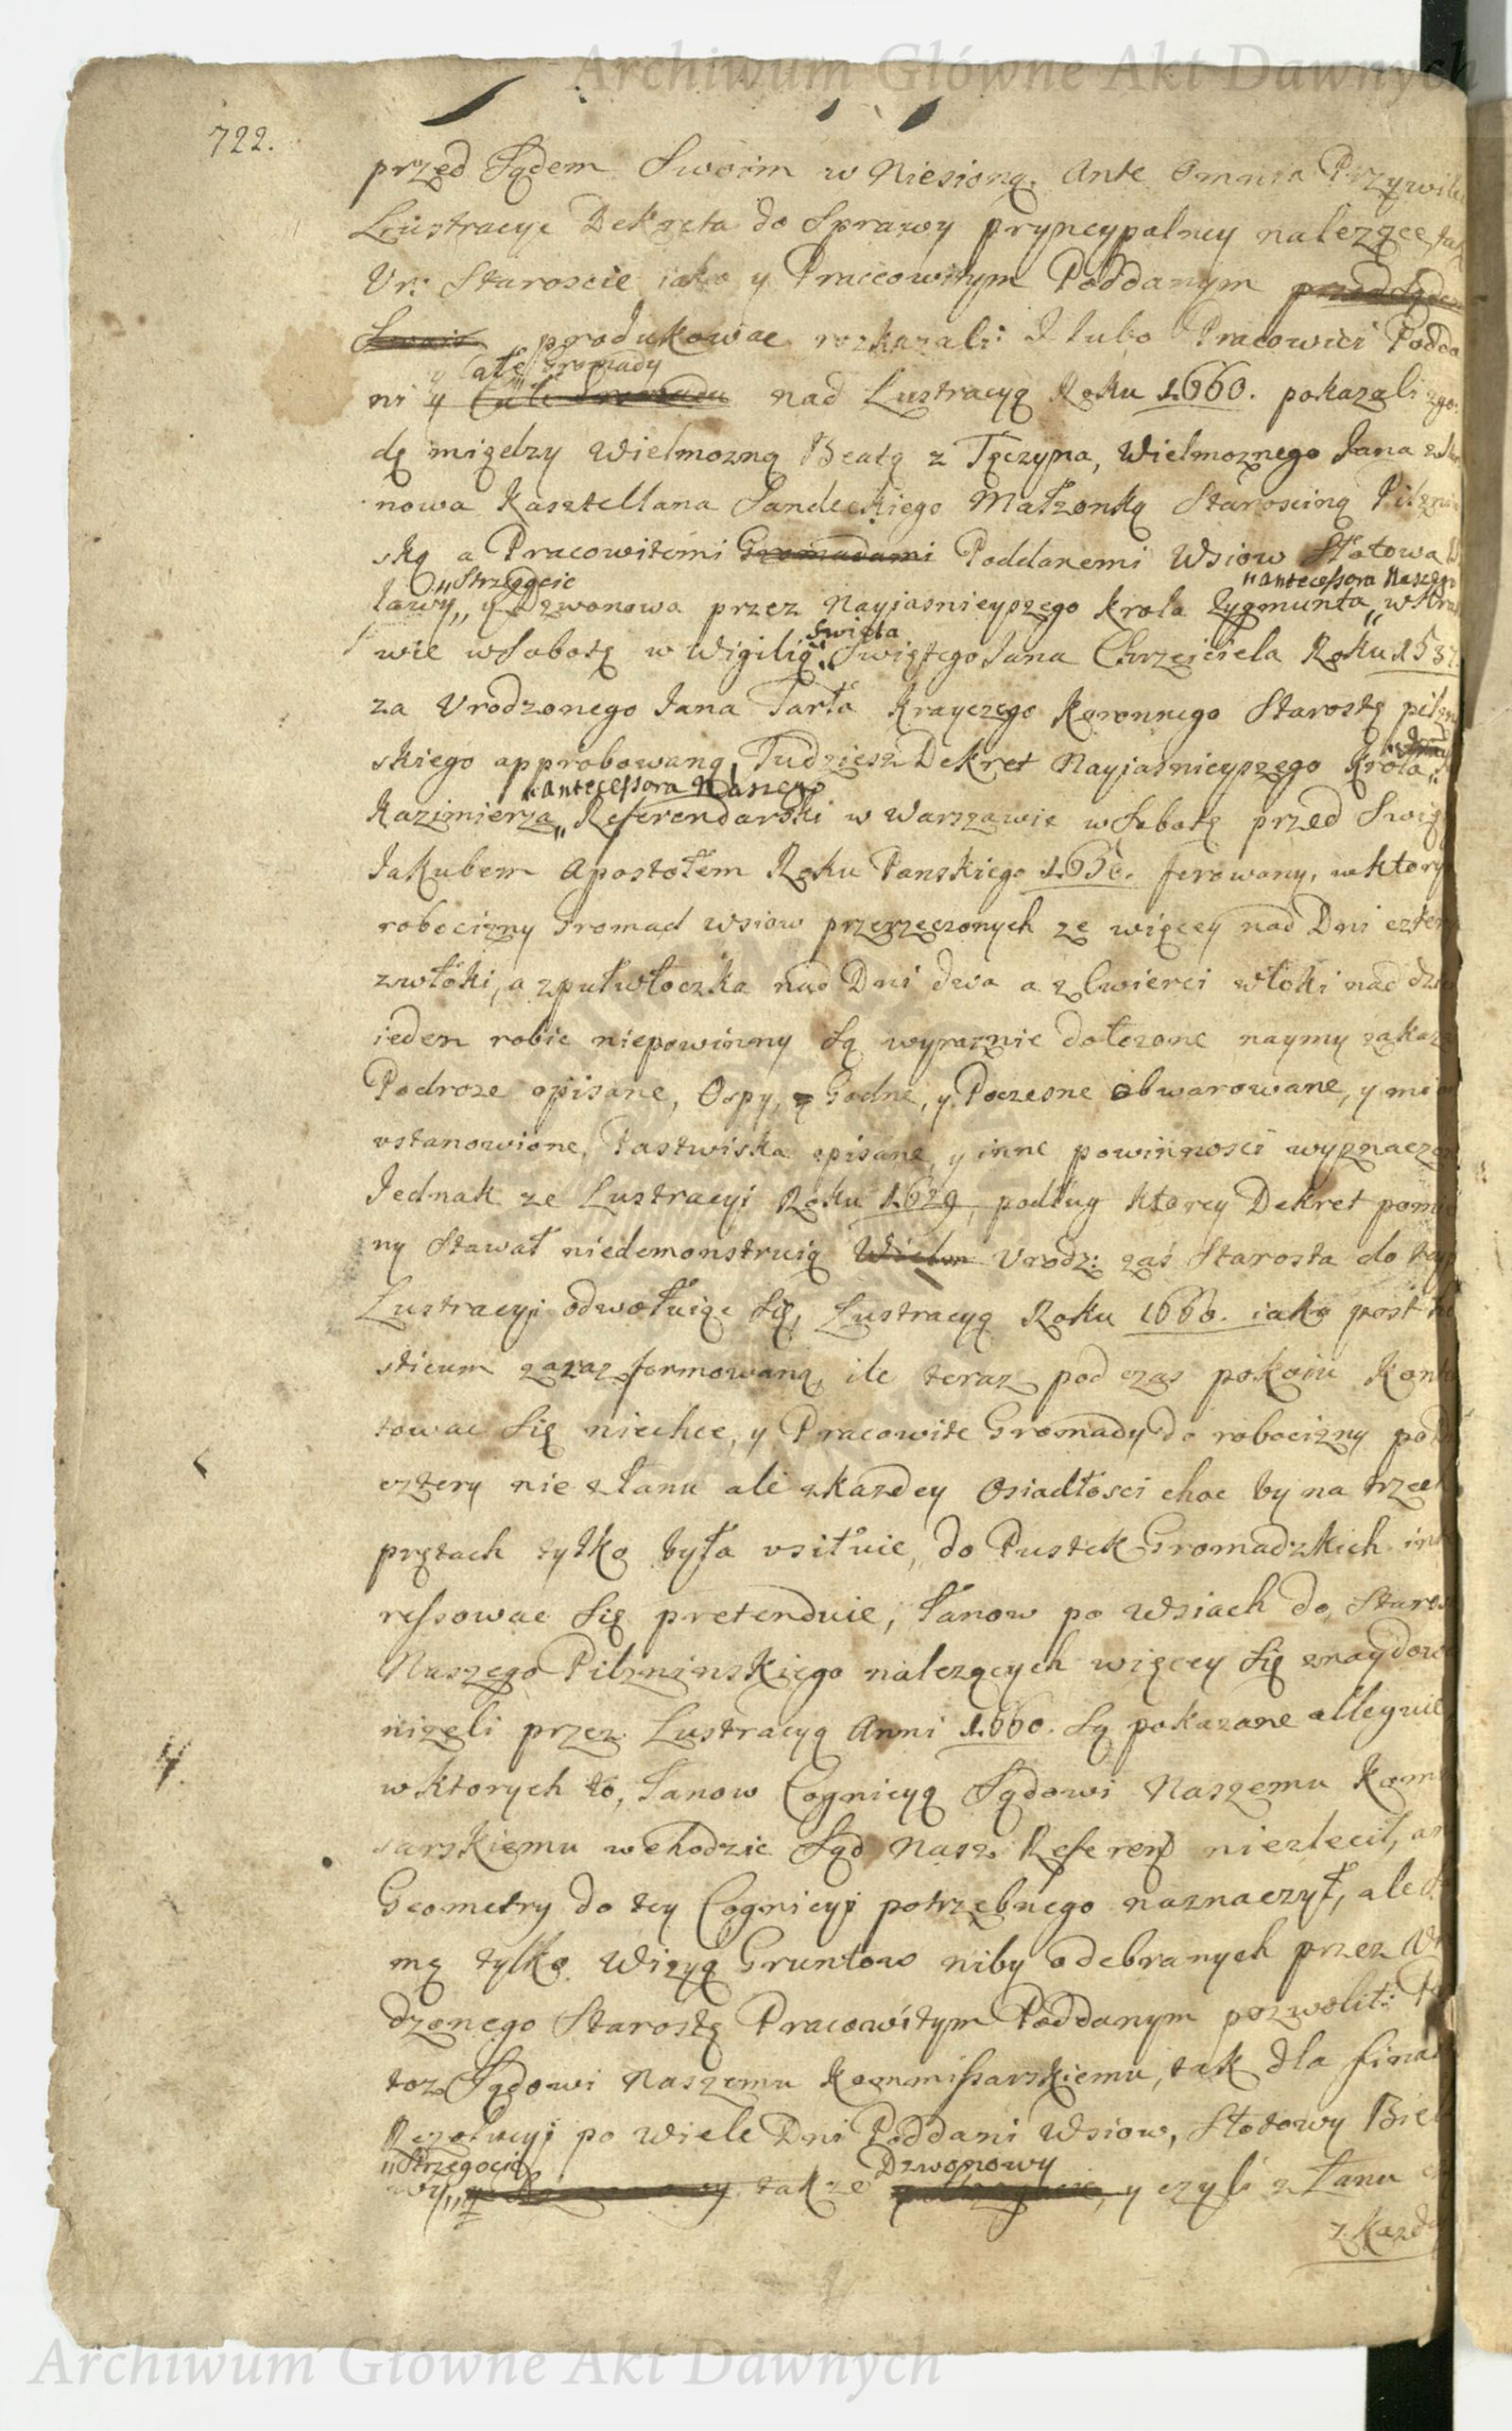 Archiwum Główne Akt Dawnych
722.
przed Sądem Swoim w Niesioną. Ante Omnia Przywile
Lustracye Dekreta do Sprawy pryncypalney nalezące, tak
Vr: Staroscie iako y Praccowitym Poddanym przed Sądem
Swoim produkowac rozkazali: I lubo Pracowici Podda
y Całe Gromady
ni y Całe Gromada nad Lustracyą Roku 1660. pokazali zgo:
dę między Wielmozną Beatą z Tęczyna, Wielmoznego Jana z
nowa Kasztellana Sandeckiego Małzonką Starosciną Pilzni
ską a Pracowitemi Gromadami Poddanemi Wsiow Słotowa
"Strzegocic "antecessora Naszego
lawy,, y Dzwonowa przez Nayjasnieyszego Krola Zygmunta,, w Kra
Swięta
wie w Sobotę w Wigilią,, Swiętego Jana Chrzciciela Roku 153
za Vrodzonego Jana Tarła Krayczego Koronnego Starostę pilzni
skiego approbowaną, Tudziesz Dekret Nayjasnieyszego Krola,,
"antecessora Naszego
Kazimierza,, Referendarski w Warszawie w Sobotę przed Swię
Jakubem Apostołem Roku Panskiego 1656. ferowany, w ktory
robocizny Gromad wsiow przerzeczonych ze więcey nad Dni cztery
z włoki, a z pułwłoczka nad Dni dwa a z Cwierci włoki nad dzie
ieden robic niepowinny są wyraznie dołozone naymy zakaza
Podroze opisane, Ospy, y Godne, y Poczesne obwarowane, y
vstanowione, Pastwiska opisane, y inne powinnosci wyznaczon
Jednak ze Lustracyi Roku 1629, podług ktorey Dekret pomie
ny Stawał niedemonstruią Wielm Vrodz: zas Starosta do
Lustracyi odwołuiąc się, Lustracyą Roku 1660. iako post
sticum zaraz formowaną, ile teraz pod czas pokoiu Kon
towac się niechce, y Pracowite Gromady do robocizny po
cztery nie z łanu ale z kazdey Osiadłosci choc by na trzech
prętach tylko była vsiłuie, do Pustek Gromadzkich in
ressowac się pretenduie, łanow po Wsiach do Staros
Naszego Pilzninskiego nalezących więcey się znaydow
nizeli przez Lustracyą Anni 1660. są pokazane alleguie
w ktorych to, łanow Cognicyą Sądowi Naszemu Kom
sarskiemu wchodzic Sąd Nasz Referen niezlecił, an
Geometry do tey Cognicyi potrzebnego naznaczył, ale
mę tylko Wizyą Gruntow niby odebranych przez Vr
dzonego Starostę Pracowitym Poddanym pozwolił:
toz Sądowi Naszemu Kommissarskiemu, tak dla final
Rezolucyi po wiele Dni Poddani Wsiow, Słotowy Biel
"Strzegocic Dzwonowy
wy,, y także y czyli z Łanu
z Kazde
Archiwum Główne Akt Dawnych